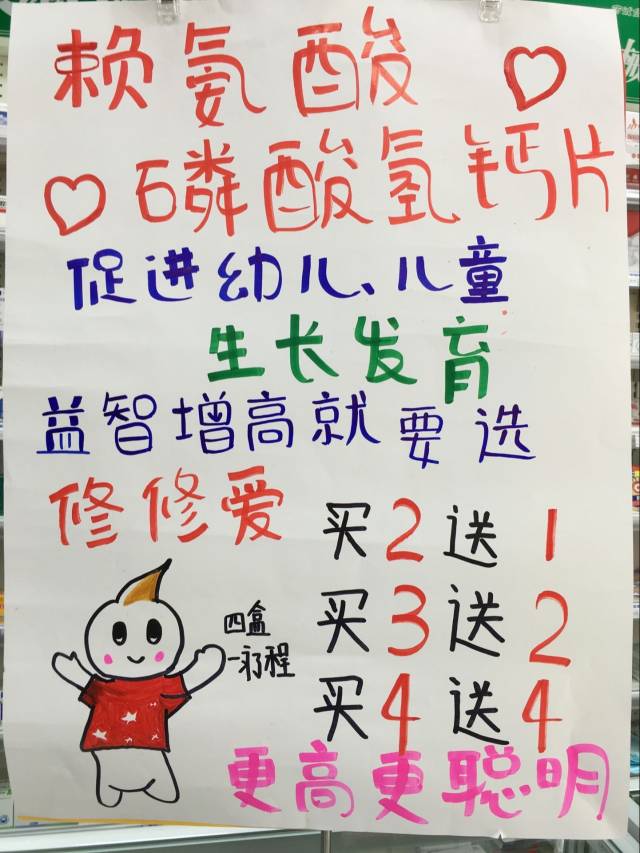 赖氨酸
磷酸氢钙片
促进幼儿、儿童
生长发育
益智增高就要选
修修爱
买2送1
买3送2
四盒
一疗程
买4送4
更高更聪明